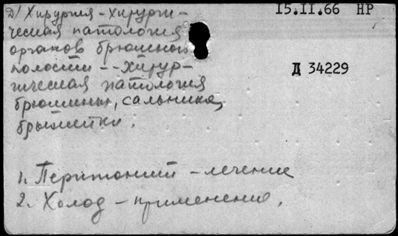 Д/ Хирургия - хирурги-
ческая патология
органов брюшной
полости -- хирур-
гическая патология
брюшины, сальника,
брыжейки.
15.II.66 НР
Д 34229
1. Перитонит - лечение
2. Холод - применение.